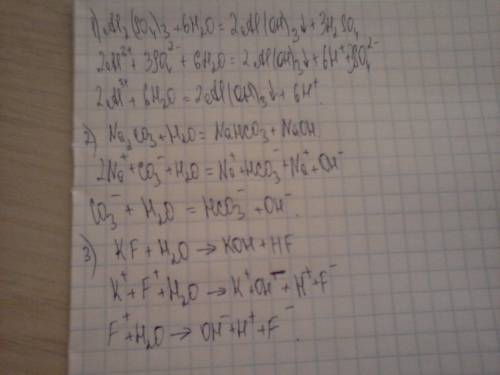 1) Al₂(SO₄)₃ + 6H₂O = 2Al(OH)₃↓ + 3H₂SO₄
2Al³⁺ + 3SO₄²⁻ + 6H₂O = 2Al(OH)₃↓ + 6H⁺ + 3SO₄²⁻
2Al³⁺ + 6H₂O = 2Al(OH)₃↓ + 6H⁺.
2) Na₂CO₃ + H₂O = NaHCO₃ + NaOH
2Na⁺ + CO₃⁻ + H₂O = Na⁺ + HCO₃⁻ + Na⁺ + OH⁻
CO₃⁻ + H₂O = HCO₃⁻ + OH⁻.
3) KF + H₂O → KOH + HF
K⁺ + F⁺ + H₂O → K⁺ + OH⁻ + H⁺ + F⁻
F⁺ + H₂O → OH⁻ + H⁺ + F⁻.